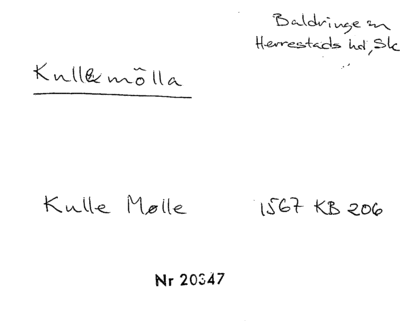 Baldringe sn
Herrestads hd, Sk
Kullemölla
Kulle Mølle 1567 KB 206
Nr 20347